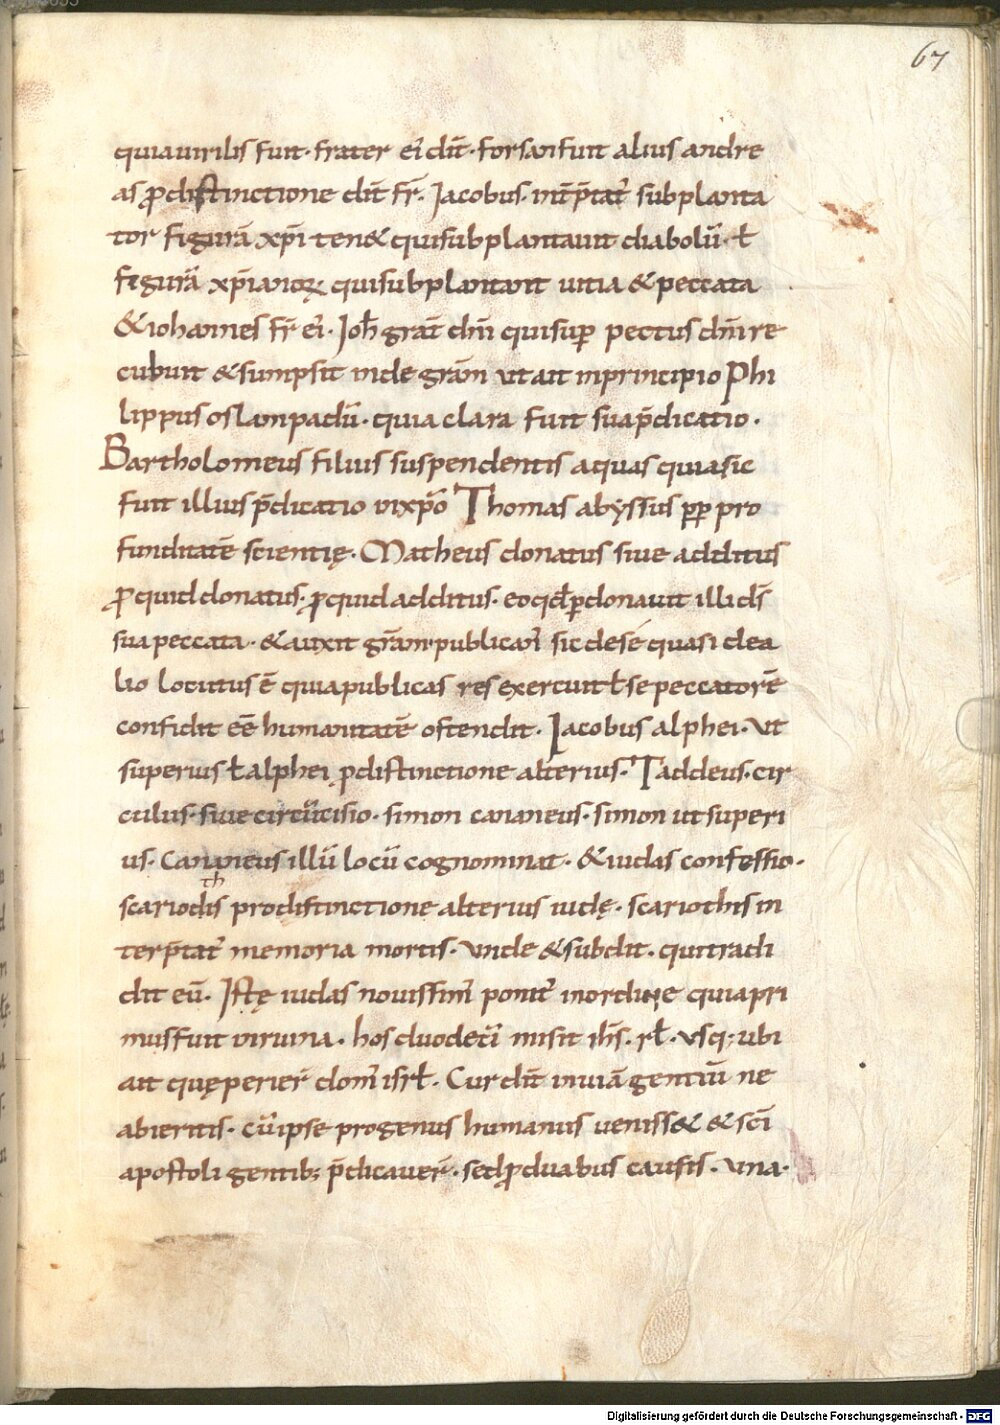 67
quia uirilis fuit · frater ei᾽ dn̄t · forsan fuit alius andre
as ꝓ distinctione dn̄t fr̄ · Jacobus · int̄p̄tat᾽ subplanta
tor figurā xp̄i ten& qui subplantauit diabolū · ł
figurā xp̄ianoꝝ qui subplantant uitia & peccata
& iohannes fr̄ ei᾽ · Joh̄ grat̄ dn̄i qui sup̄ pectus dn̄i re
cubuit & sumpsit inde grām ut ait in principio Phi
lippus os lampadū · quia clara fuit sua p̄dicatio ·
Bartholomeus filius suspendentis aquas quia sic
fuit illius p̄dicatio in xp̄o Thomas abyssus ꝓp̄ pro
funditatē scientię · Matheus donatus siue additus
ꝓ quid donatus · ꝓ quid additus · eo qd̄ ꝑdonauit illi dn̄s
sua peccata · & auxit grām · publican᾽ sic de sé quasi de a
lio locutus ē quia publicas res exercuit ł se peccatorē
confidit eē humanitatē ostendit · Jacobus alphei · ut
superius ł alphei ꝓ distinctione alterius · Taddeus · cir
culus · siue circūcisio · simon cananeus · simon ut superi
us · Cananeus illū locū cognominat · & iudas confessio ·
th
scariodis pro distinctione alterius iudę · scariothis in
terp̄tat᾽ memoria mortis · unde & subdit · qui tradi
dit eū · Istę iudas nouissim᾽ ponit᾽ in ordine quia pri
mus fuit in ruina · hos duodeci᾽ misit ih̄s · rł · usq; ubi
ait quę perier̄ dom᾽ isrł · Cur dn̄t in uiā gentiū ne
abieritis · cū ipse pro genus humanus ueniss& & sc̄i
apostoli gentib; p̄dicauer̄ · sed ꝓ duabus causis · una ·
Digitalisierung gefördert durch die Deutsche Forschungsgemeinschaft - DFG